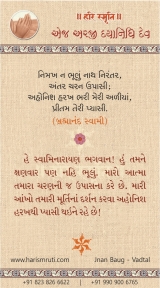 ॥ હરિ સ્મૃતિ ॥
એજ અરજી દયાનિધિ દેવ
નિમખ ન ભૂલું નાથ નિરંતર,
અંતર ચરન ઉપાસી;
અહોનિશ હરખ ભરી મેરી અખીયાં,
પ્રીતમ તેરી પ્યાસી.
(બ્રહ્માનંદ સ્વામી)
હે સ્વામિનારાયણ ભગવાન! હું તમને
ક્ષણવાર પણ નહિ ભૂલું. મારો આત્મા
તમારા ચરણની જ ઉપાસના કરે છે. મારી
આંખો તમારી મૂર્તિનાં દર્શન કરવા અહોનિશ
હરખથી પ્યાસી થઈને રહે છે!
www.harismruti.com
Jnan Baug - Vadtal
+91 823 826 6622
+91 990 900 6765